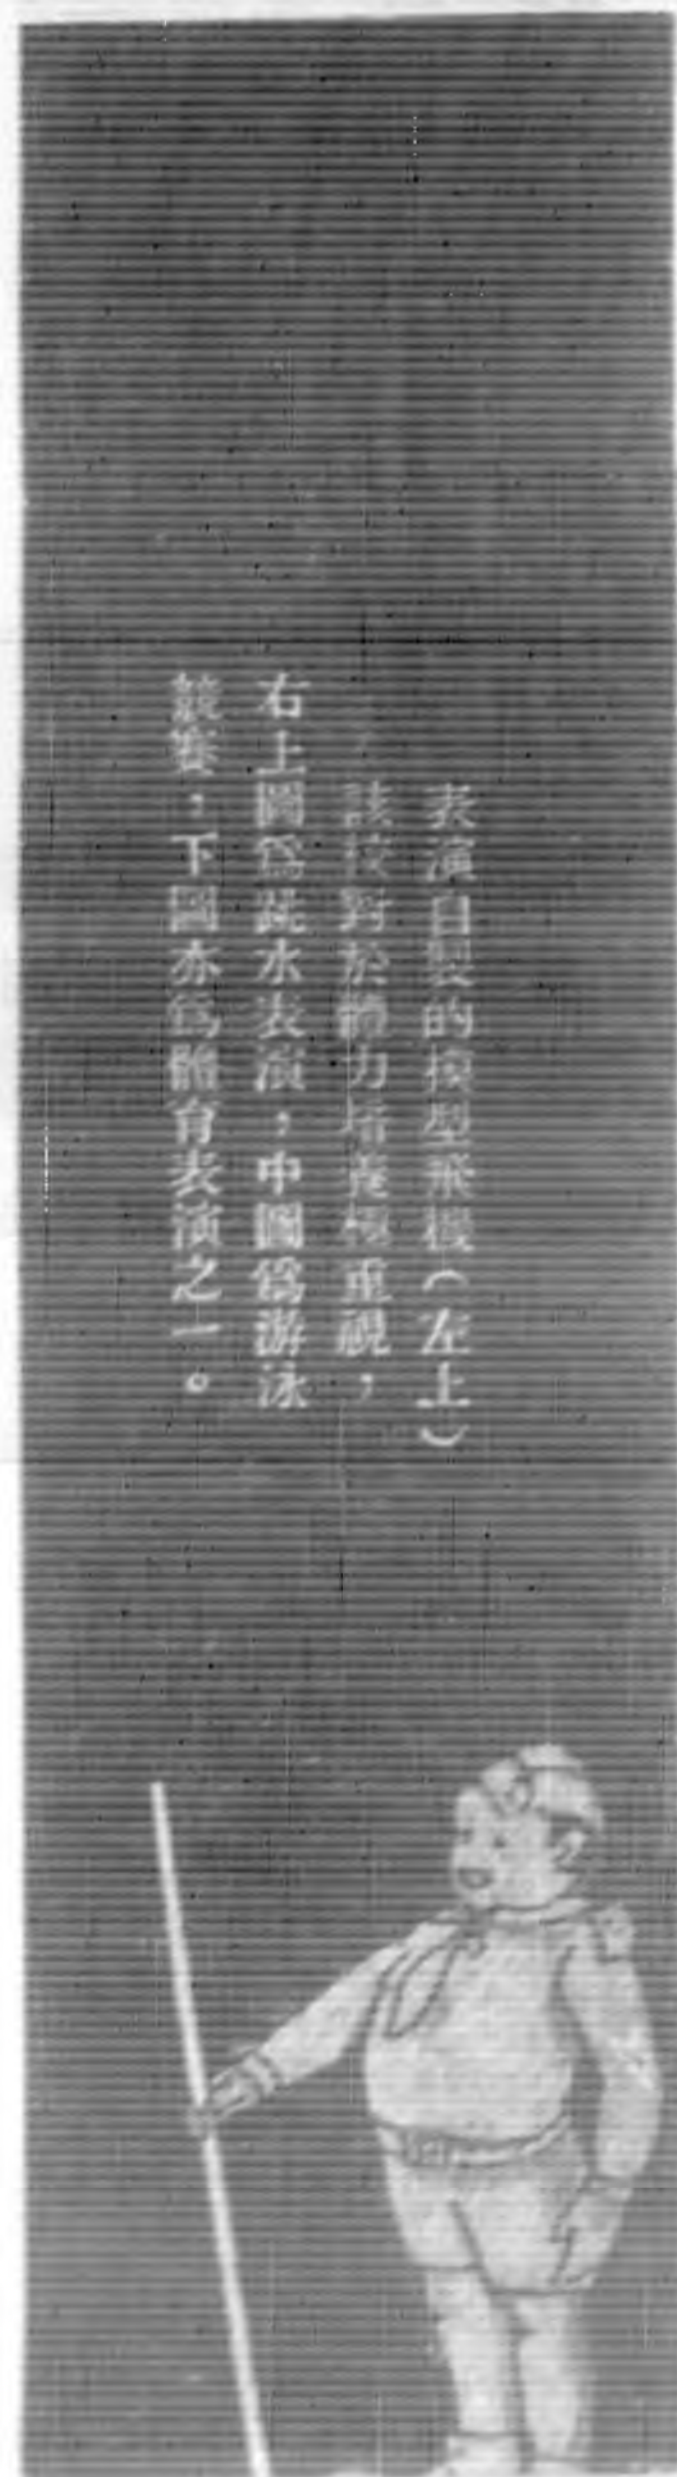 表演自製的模型飛機(左上)
該校對於體力培養極重視,
右上圖爲跳水表演,中圖爲游泳
競賽,下圖亦爲體育表演之一。